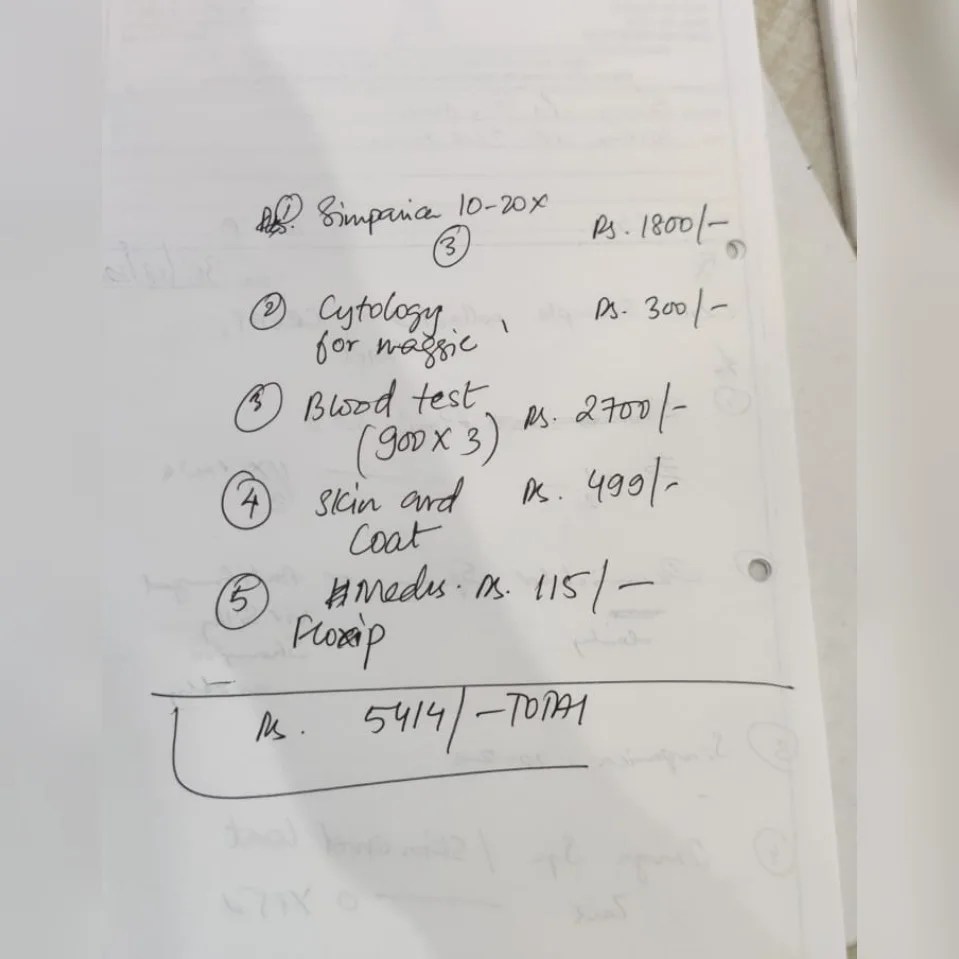 ①. Simparica 10-20x Rs. 1800/-
③
② Cytology Rs. 300/-
for maggie
③ Blood test Rs. 2700/-
(900 x 3)
④ Skin and Rs. 499/-
Coat
⑤ Meds. Rs. 115/-
Floxip
Rs. 5414/- TOTAL